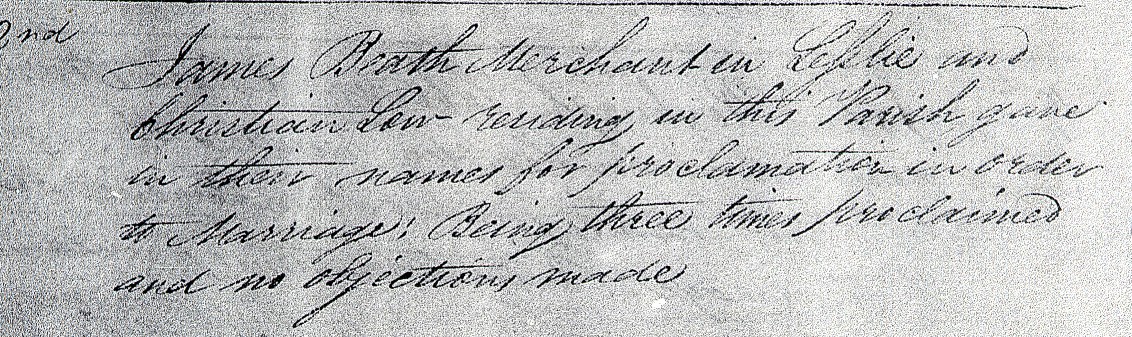 2nd
James Beath Merchant in Leslie and
Christian Low residing in this Parish gave
in their names for proclamation in order
to Marriage; Being three times proclaimed
and no objections made